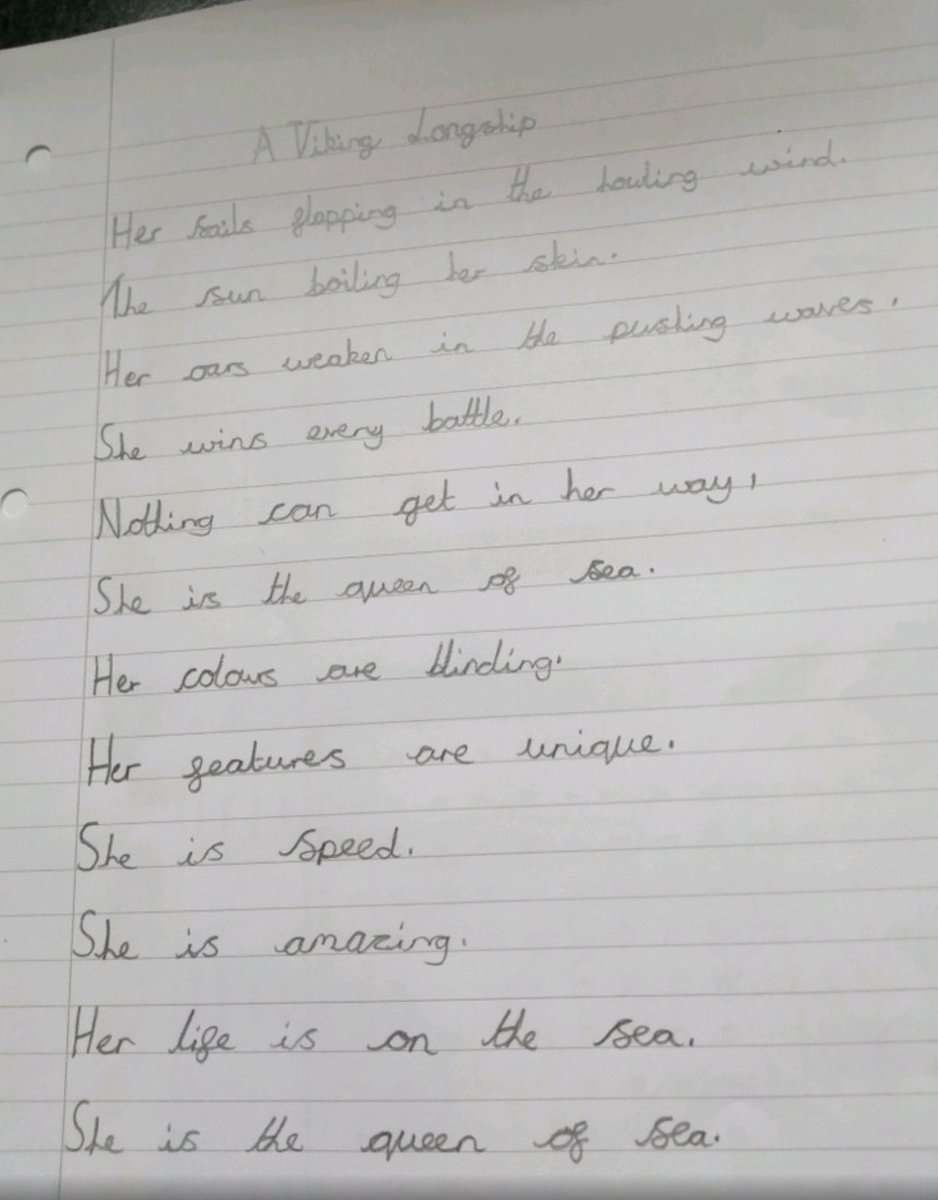 A Viking Longship
Her sails flapping in the howling wind.
The sun boiling her skin.
Her oars weaken in the pushing waves.
She wins every battle.
Nothing can get in her way,
She is the queen of sea.
Her colours are blinding.
Her features are unique.
She is speed.
She is amazing.
Her life is on the sea.
She is the queen of sea.